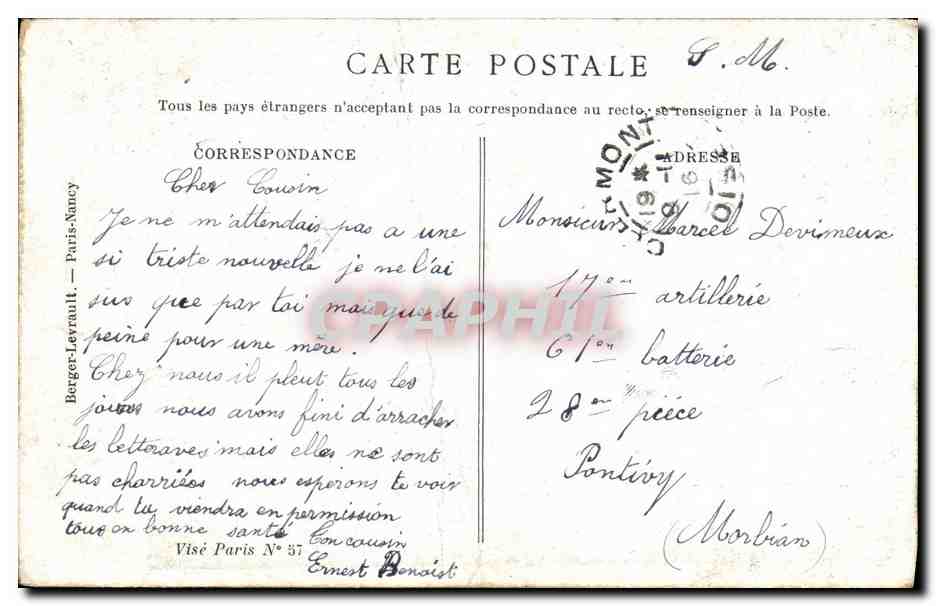 CARTE POSTALE
S. M.
Tous les pays étrangers n'acceptant pas la correspondance au recto, se renseigner à la Poste.
CORRESPONDANCE
Cher Cousin
Je ne m'attendais pas a une
si triste nouvelle je ne l'ai
sus que par toi mais que de
peine pour une mère.
Chez nous il pleut tous les
jours nous avons fini d'arracher
les bettoraves mais elles ne sont
pas charriées nous esperons te voir
quand tu viendra en permission
tous en bonne santé
Ton cousin
Ernest Benoist
Visé Paris N° 57
Berger-Levrault. — Paris-Nancy
ADRESSE
Monsieur Marcel Devimeux
17 em artillerie
61 em batterie
28 em pièce
Pontivy
(Morbian)
MONT
19 * 
11
16
OISE
CPAPHIL